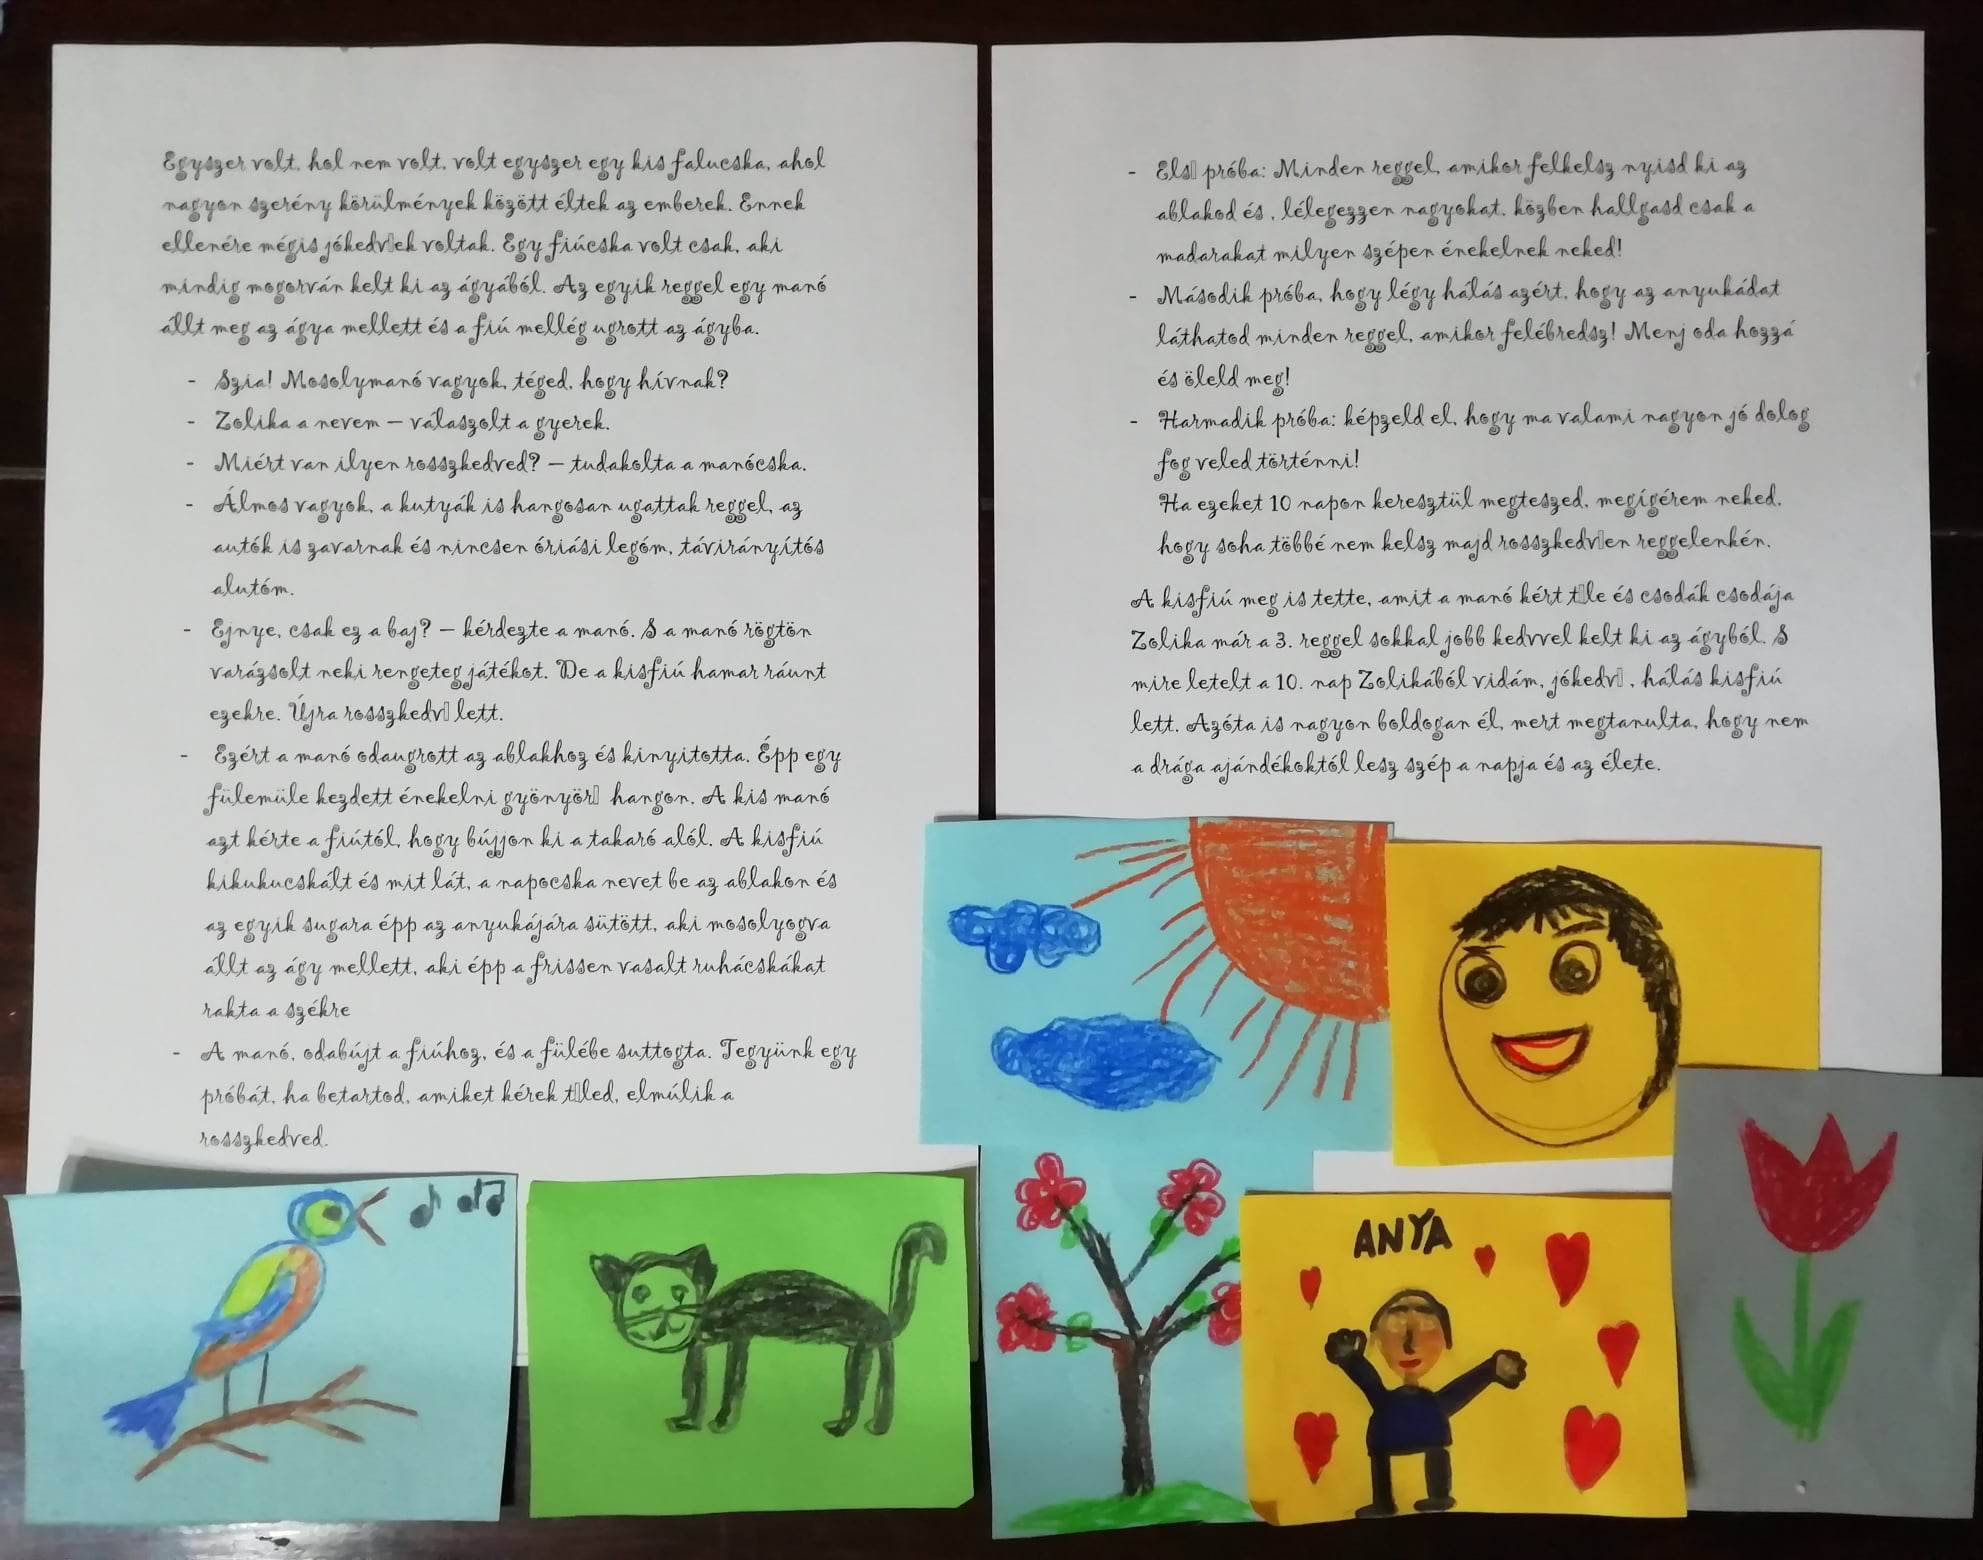 Egyszer volt, hol nem volt, volt egyszer egy kis falucska, ahol
nagyon szerény körülmények között éltek az emberek. Ennek
ellenére mégis jókedv▯ek voltak. Egy fiúcska volt csak, aki
mindig mogorván kelt ki az ágyából. Az egyik reggel egy manó
állt meg az ágya mellett és a fiú mellég ugrott az ágyba.
- Szia! Mosolymanó vagyok, téged, hogy hívnak?
- Zolika a nevem – válaszolt a gyerek.
- Miért van ilyen rosszkedved? – tudakolta a manócska.
- Álmos vagyok, a kutyák is hangosan ugattak reggel, az
autók is zavarnak és nincsen óriási legóm, távirányítós
alutóm.
- Ejnye, csak ez a baj? – kérdezte a manó. S a manó rögtön
varázsolt neki rengeteg játékot. De a kisfiú hamar ráunt
ezekre. Újra rosszkedv▯ lett.
- Ezért a manó odaugrott az ablakhoz és kinyitotta. Épp egy
fülemüle kezdett énekelni gyönyör▯ hangon. A kis manó
azt kérte a fiútól, hogy bújjon ki a takaró alól. A kisfiú
kikukucskált és mit lát, a napocska nevet be az ablakon és
az egyik sugara épp az anyukájára sütött, aki mosolyogva
állt az ágy mellett, aki épp a frissen vasalt ruhácskákat
rakta a székre
- A manó, odabújt a fiúhoz, és a fülébe suttogta. Tegyünk egy
próbát, ha betartod, amiket kérek t▯led, elmúlik a
rosszkedved.
- Els▯ próba: Minden reggel, amikor felkelsz nyisd ki az
ablakod és , lélegezzen nagyokat, közben hallgasd csak a
madarakat milyen szépen énekelnek neked!
- Második próba, hogy légy hálás azért, hogy az anyukádat
láthatod minden reggel, amikor felébredsz! Menj oda hozzá
és öleld meg!
- Harmadik próba: képzeld el, hogy ma valami nagyon jó dolog
fog veled történni!
Ha ezeket 10 napon keresztül megteszed, megígérem neked,
hogy soha többé nem kelsz majd rosszkedv▯en reggelenkén.
A kisfiú meg is tette, amit a manó kért t▯le és csodák csodája
Zolika már a 3. reggel sokkal jobb kedvvel kelt ki az ágyból. S
mire letelt a 10. nap Zolikából vidám, jókedv▯ , hálás kisfiú
lett. Azóta is nagyon boldogan él, mert megtanulta, hogy nem
a drága ajándékoktól lesz szép a napja és az élete.
ANYA